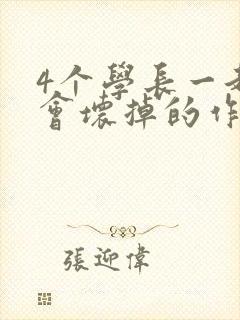 4个學長一
會壞掉的作
張迎偉